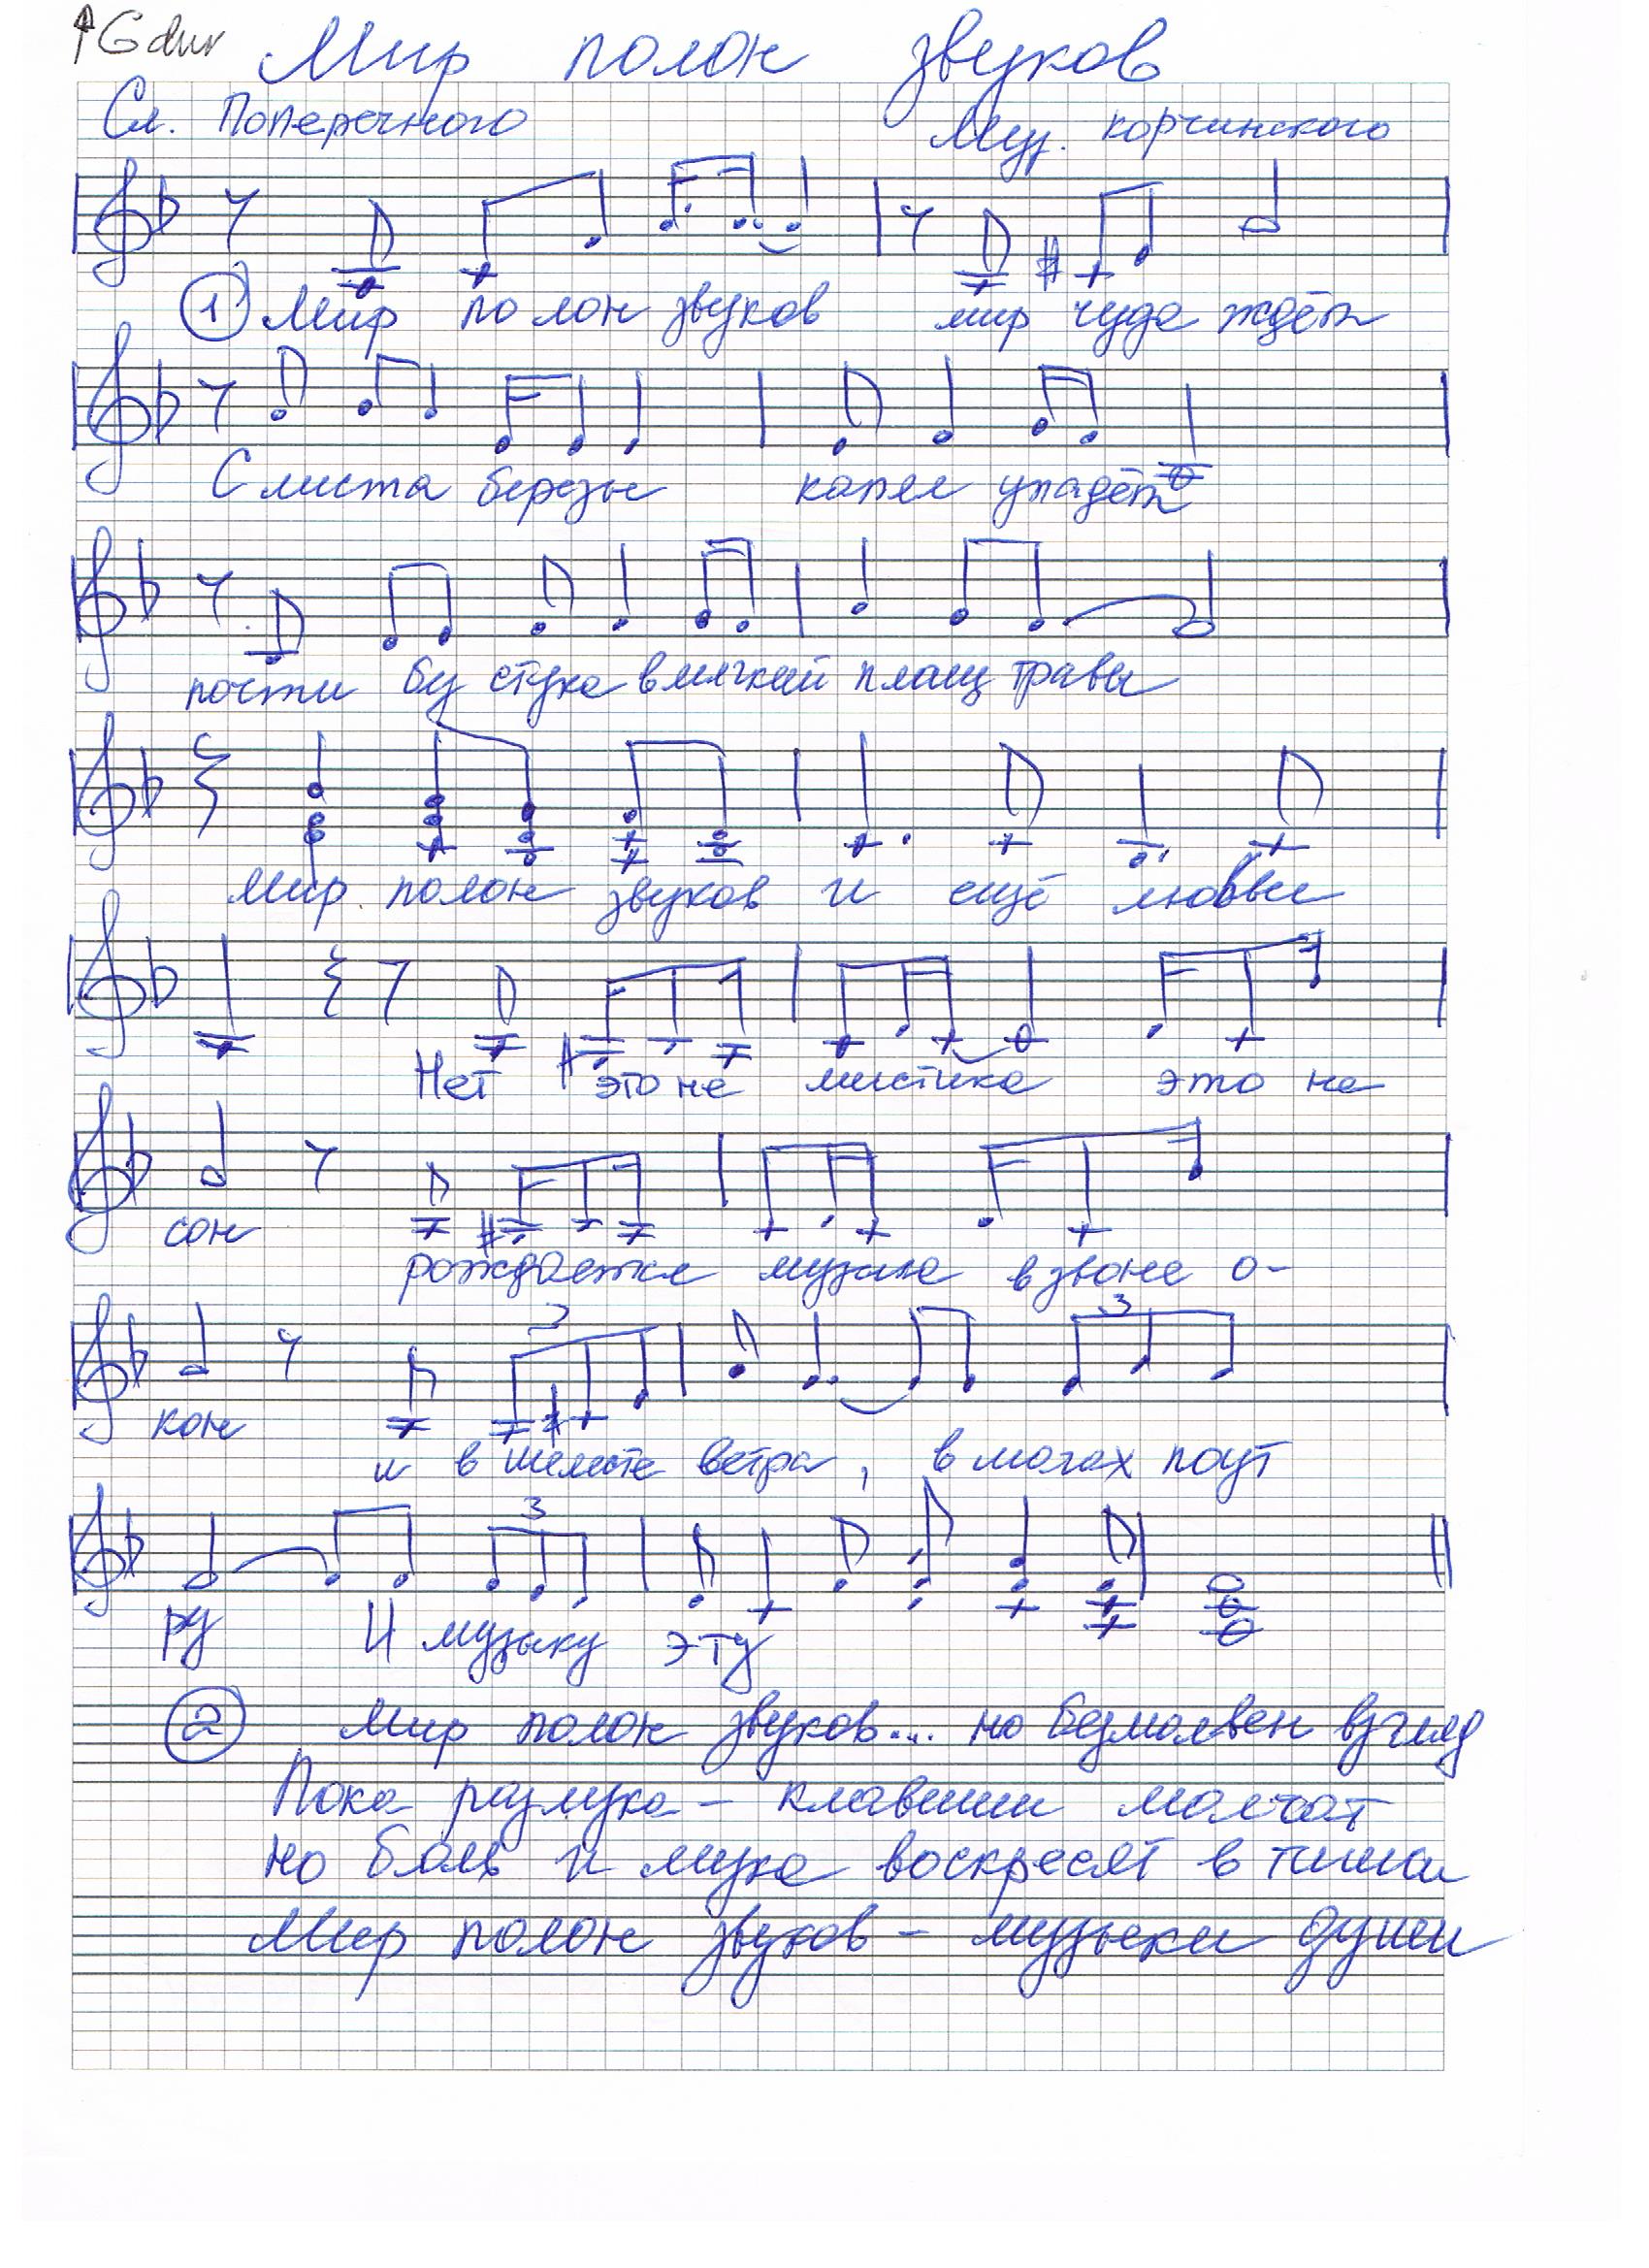 ↑G dur
Мир полон звуков
Сл. Поперечного Муз. Корчинского
① Мир полон звуков мир чуда ждёт
С листа березы капля упадёт
почти без стука в мягкий плащ травы
3
Мир полон звуков и ещё любви
Нет это не мистика это не
сон
рождается музыка в звоне о-
3 3
кон
и в шелесте ветра, в ногах поут
3
ру И музыку эту
② Мир полон звуков... но безмолвен взгляд
Пока разлука - клавиши молчат
но боль и мука воскресят в тиши
Мир полон звуков - музыки души